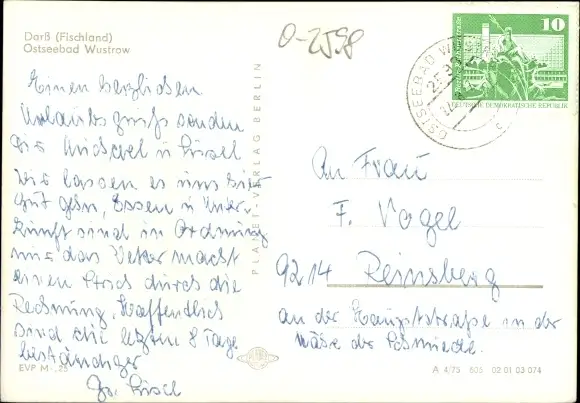 Darß (Fischland)
Ostseebad Wustrow
0-2598
Einen herzlichen
Urlaubsgruß senden
die
Wir lassen es uns hier
gut gehn, Essen u Unter-
kunft sind in Ordnung
nur das Wetter macht
einen Strich durch die
Rechnung, Hoffendlich
sind die letzten 8 Tage
beständiger
EVP M -,25
PLANET-VERLAG BERLIN
OSTSEEBAD
10
DEUTSCHE DEMOKRATISCHE REPUBLIK
An Frau
F. Vogel
9214 Reinsberg
an der Hauptstraße in der
Nähe der Schmiede.
A 4/75 605 02 01 03 074